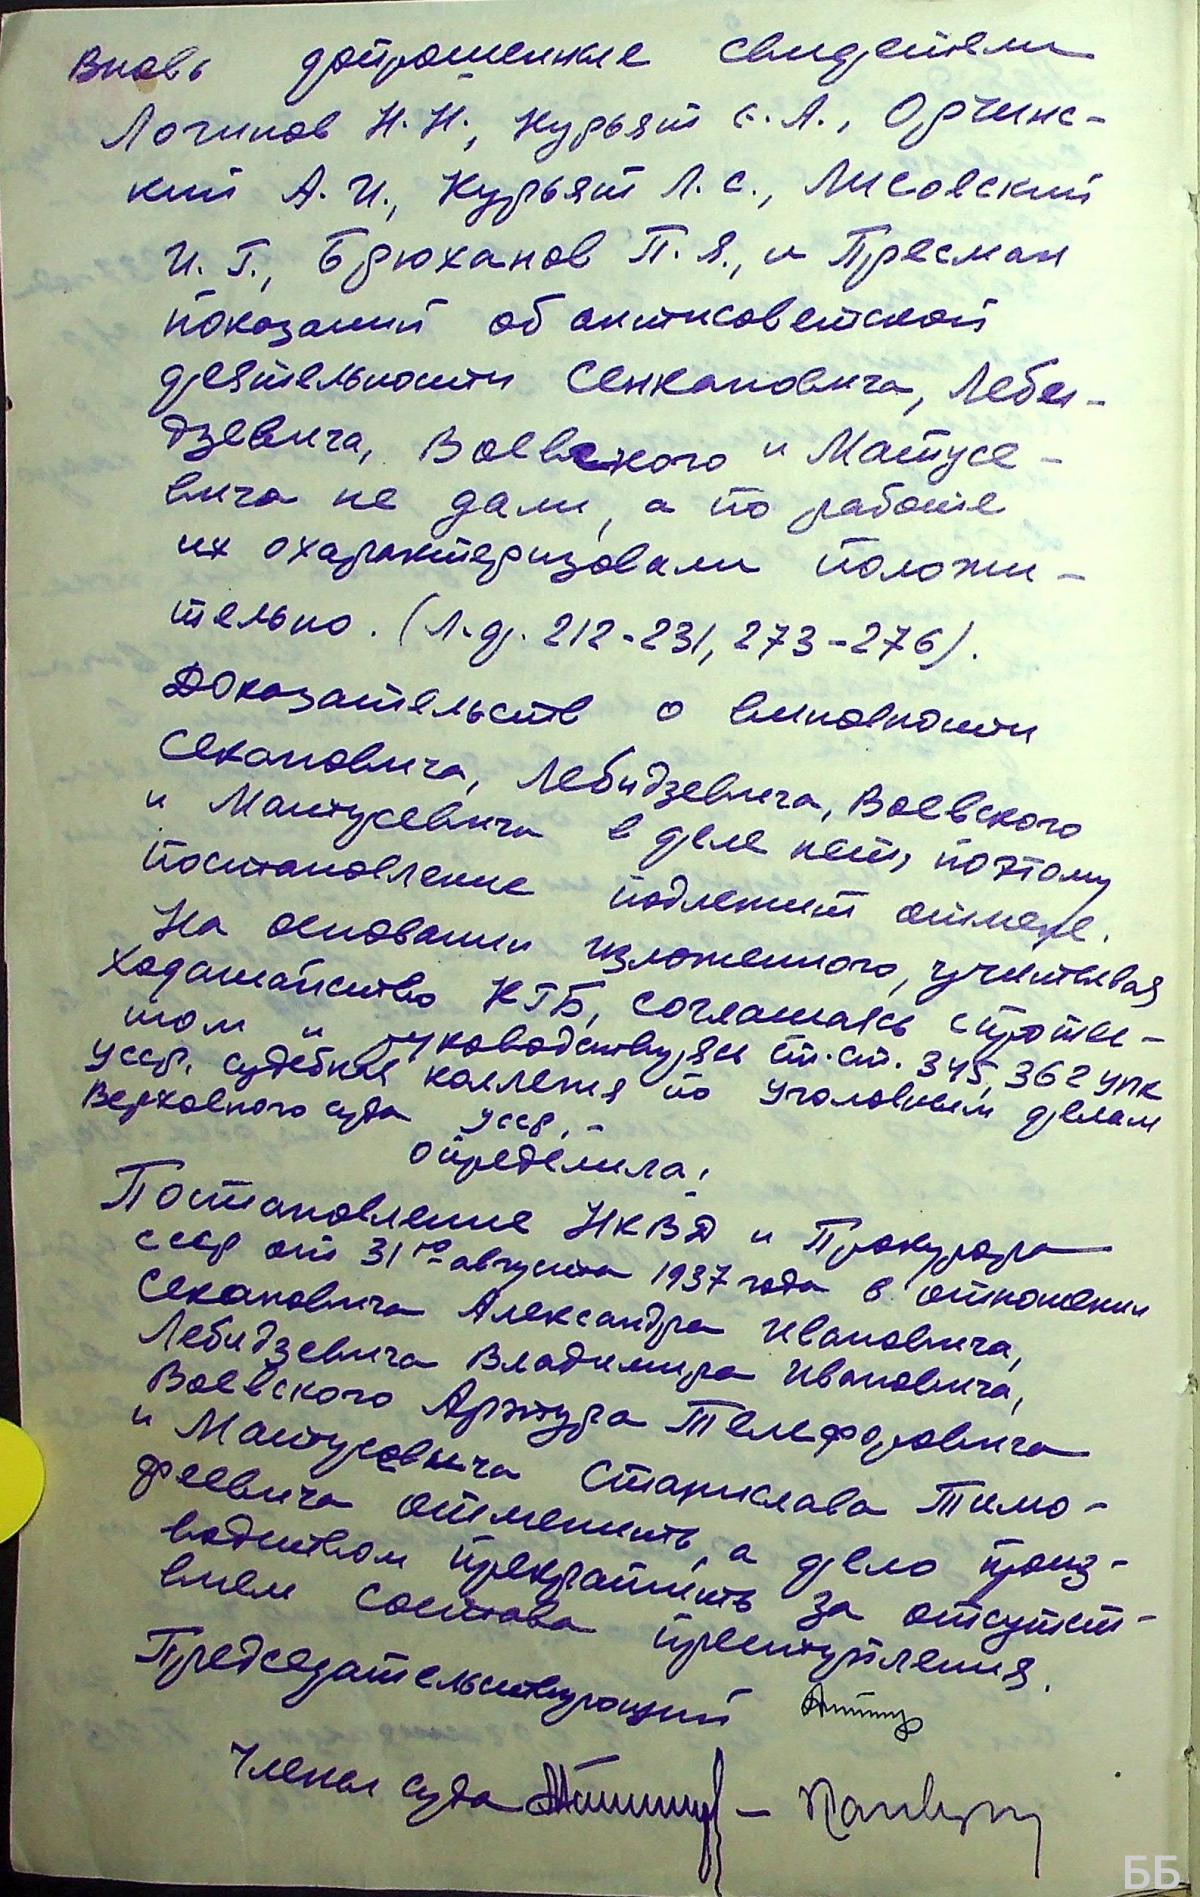 Вновь допрошенные свидетели
Логинов Н.Н., Курьят С.А., Одчинс-
кий А.И., Курьят Л.С., Лисовский
И.Г., Брюханов П.Я., и Пресман
показаний об антисоветской
деятельности Сенкановича, Лебе-
дзевича, Воевского и Матусе-
вича не дали, а по работе
их охарактеризовали положи-
тельно. (Л.д. 212-231, 273-276).
Доказательств о виновности
Секановича, Лебидзевича, Воевского
и Матусевича в деле нет, поэтому
постановление подлежит отмене.
На основании изложенного, учитывая
ходатайство КГБ, соглашаясь с проте-
стом и руководствуясь ст.ст. 345, 362 УПК
УССР, судебная коллегия по уголовным делам
Верховного суда УССР, –
определила:
Постановление НКВД и Прокурора
СССР от 31го августа 1937 года в отношении
Секановича Александра Ивановича,
Лебидзевича Владимира Ивановича,
Воевского Артура Телефоровича
и Матусевича Станислава Тимо-
феевича отменить, а дело произ-
водством прекратить за отсутст-
вием состава преступления.
Председательствующий
Члены суда
ББ